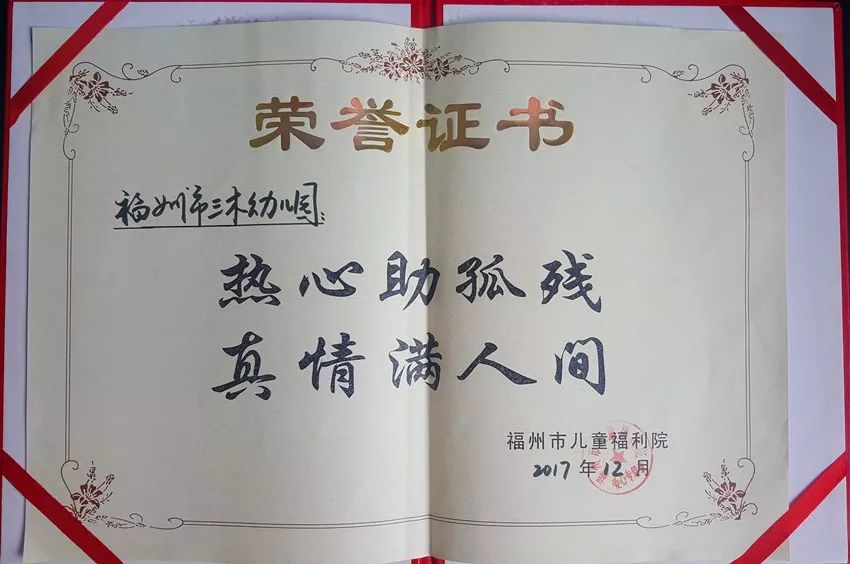 荣誉证书
福州市三木幼儿园:
热心助孤残
真情满人间
福州市儿童福利院
2017年12月